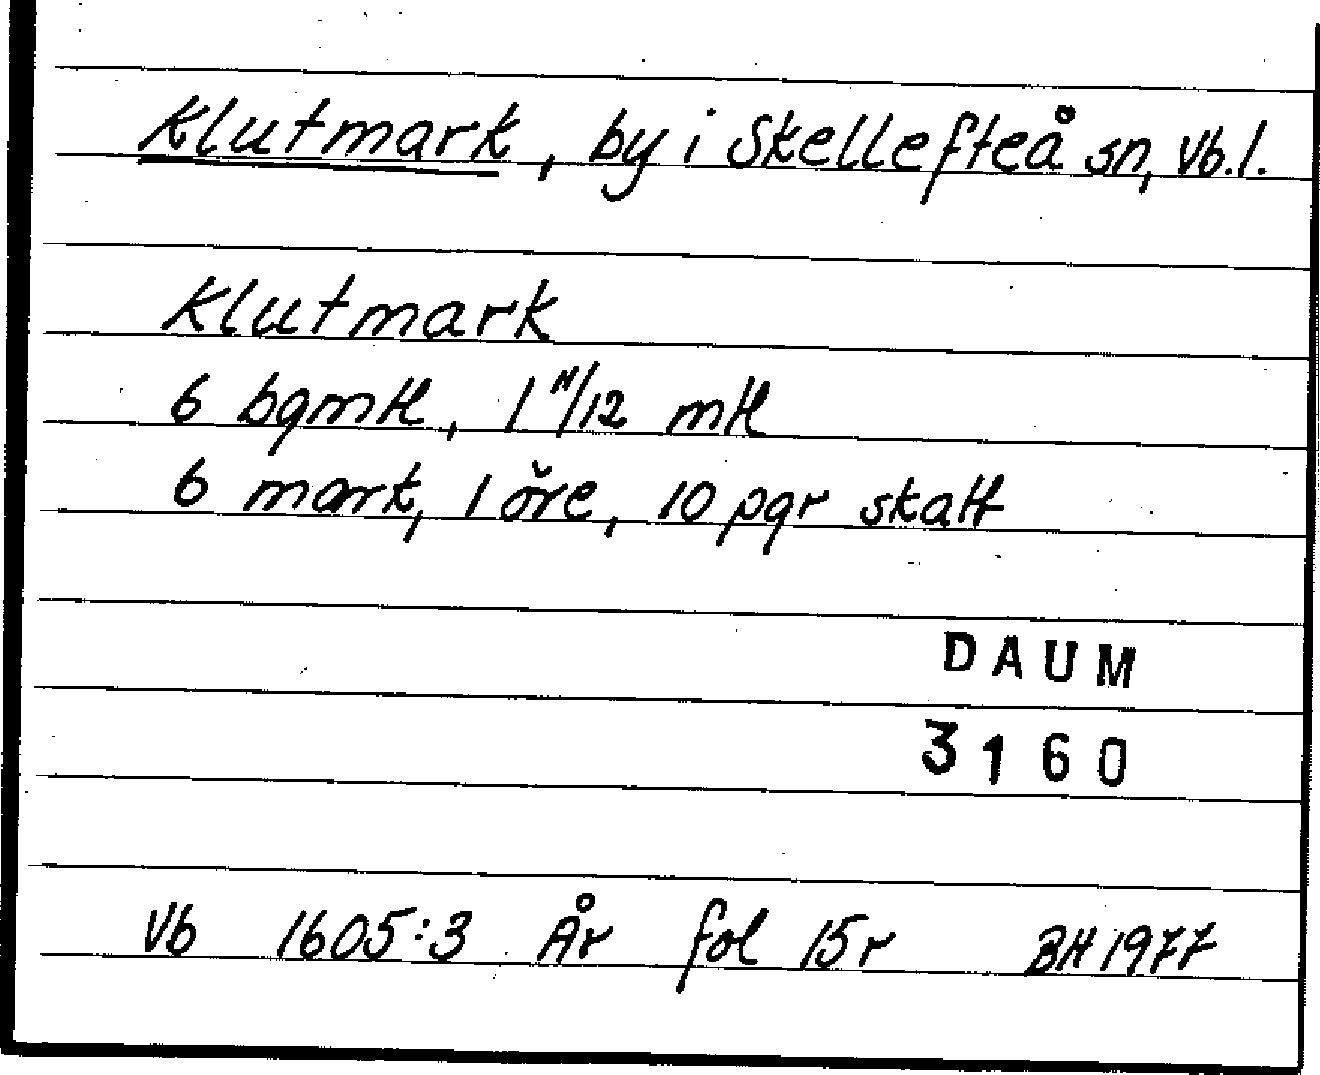 Klutmark, by i Skellefteå sn, Vb.l.
Klutmark
6 bgmtl, 1 11/12 mtl
6 mark, 1 öre, 10 pgr skatt
DAUM
3160
Vb 1605:3 År fol 15r BH 1977